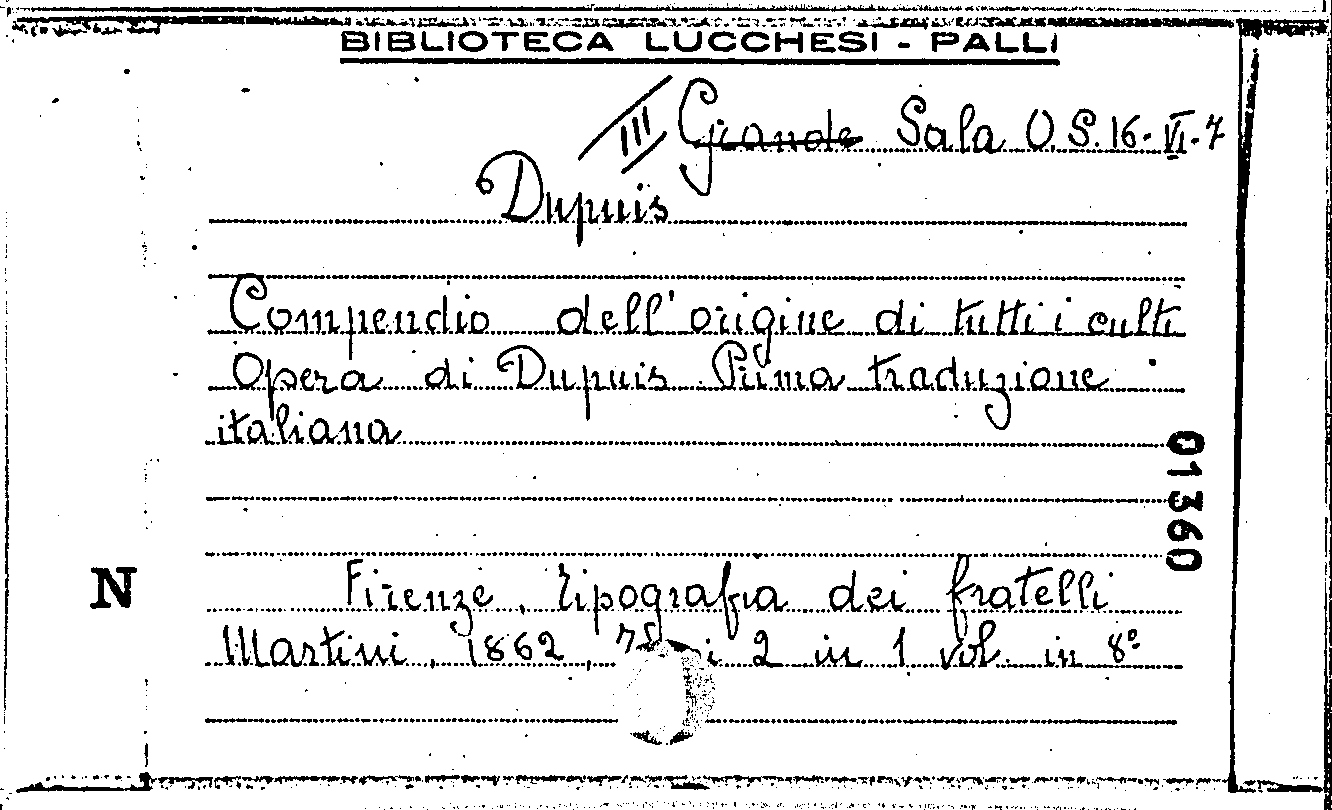 BIBLIOTECA LUCCHESI - PALLI
III Grande Sala O.S. 16-VI-7
Dupuis
Compendio dell'origine di tutti i culti
Opera di Dupuis. Prima traduzione
italiana
01360
N
Firenze, Tipografia dei fratelli
Martini, 1862, 2 in 1 vol. in 8°